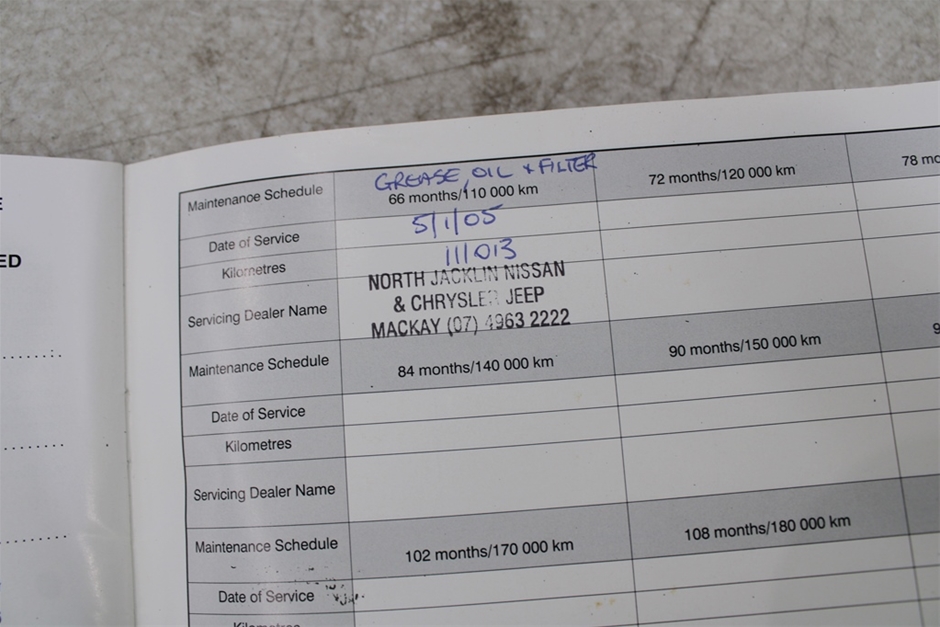 GREASE, OIL & FILTER
Maintenance Schedule 66 months/110 000 km 72 months/120 000 km 78 mo
Date of Service 5/1/05
Kilometres 111013
Servicing Dealer Name NORTH JACKLIN NISSAN
& CHRYSLER JEEP
MACKAY (07) 4963 2222
Maintenance Schedule 84 months/140 000 km 90 months/150 000 km 9
Date of Service
Kilometres
Servicing Dealer Name
Maintenance Schedule 102 months/170 000 km 108 months/180 000 km
Date of Service
Kilometres
ED